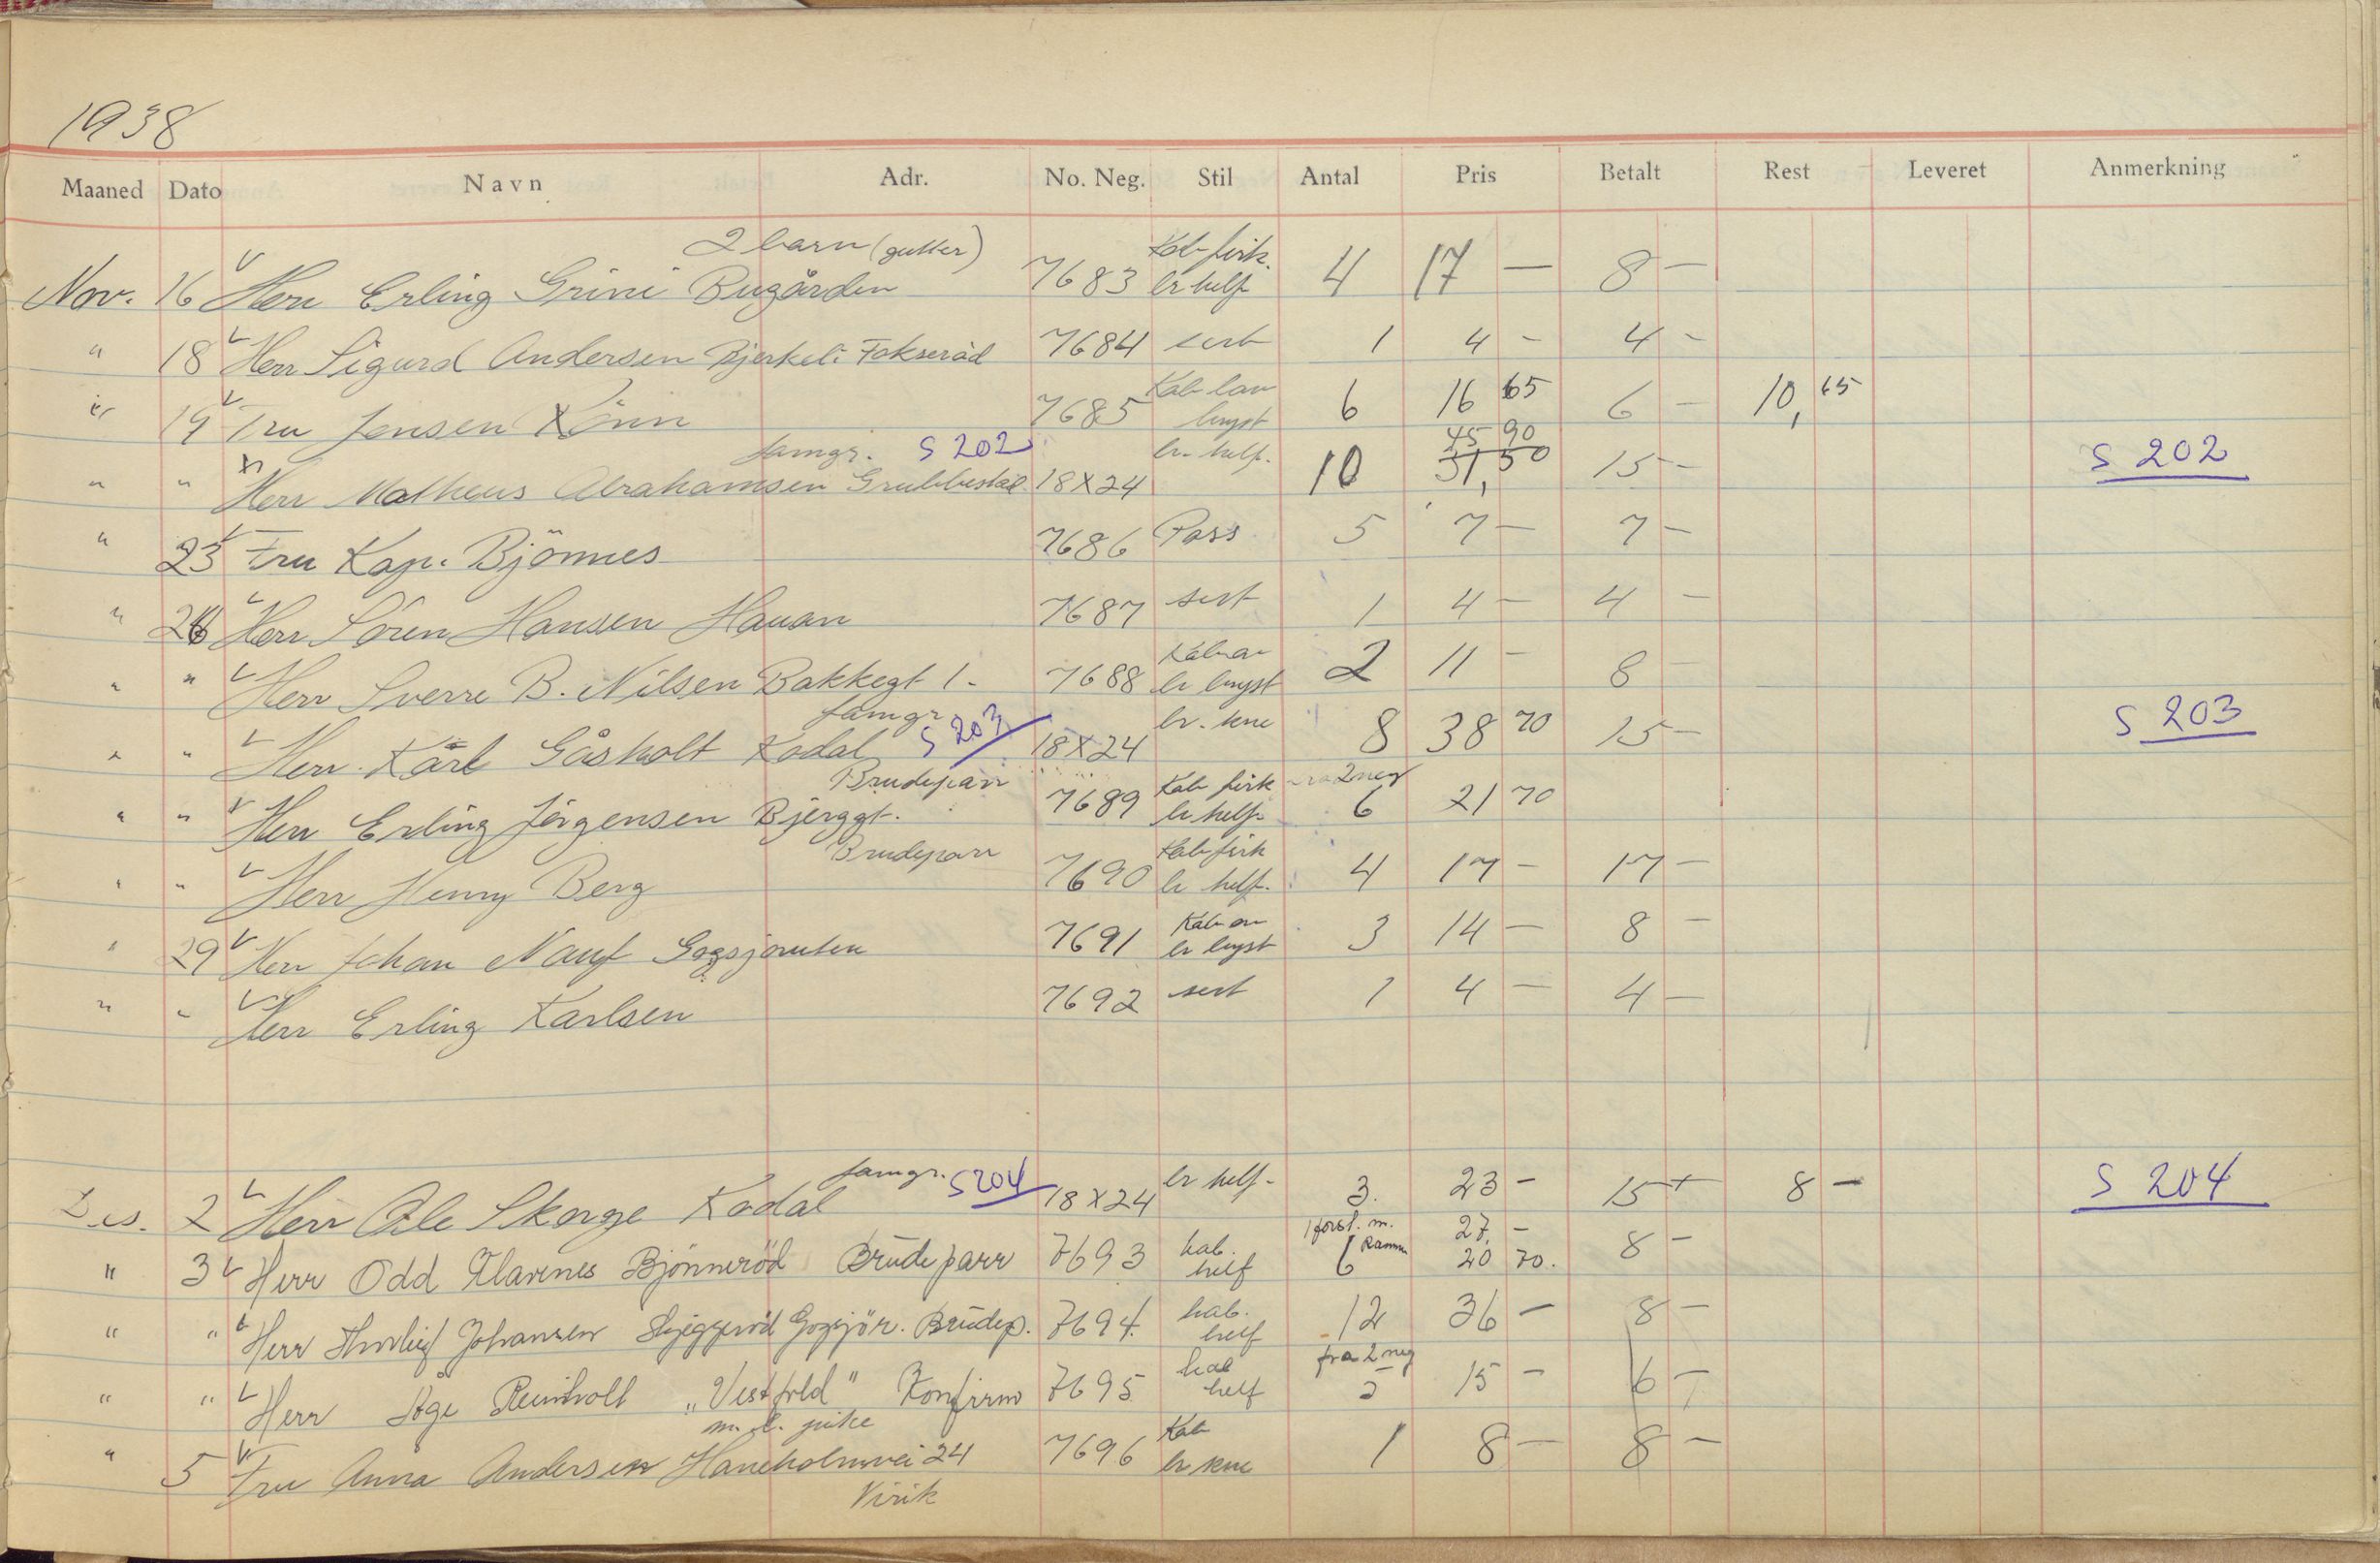 1938
Maaned Dato Navn Adr. No. Neg. Stil Antal Pris Betalt Rest Leveret Anmerkning
2 barn (gutter) Kab firk.
Nov. 16 Herr Erling Grini Bugården 7683 br helf 4 17 — 8 —
" 18 Herr Sigurd Andersen Bjerkeli Fokseröd 7684 sert 1 4 - 4 -
Kab lau
" 19 Fru Jensen 7685 bryst 6 16 65 6 - 10,65
famgr. S 202 br. helf. 45 90
" " Herr Matheus Abrahamsen 18x24 10 31,50 15 - S 202
" 23 Fru Kap. Bjönnes 7686 Pass 5 7 — 7 —
" 26 Herr Sören Hansen Hauan 7687 sert 1 4 — 4 —
Kab
" " Herr Sverre B. Nilsen Bakkegt 1. 7688 br bryst 2 11 - 8 -
famgr S 203 br. kne
" " Herr Karl Gåsholt Kodal 18x24 8 38 70 15 — S 203
Brudeparr Kab firk 2 neg
" " Herr Erling Jörgensen Bjerggt. 7689 br helf. 6 21 70
Brudeparr Kab firk
" " Herr Henny Berg 7690 br helf. 4 17 - 17 —
Kab
" 29 Herr Johan Nauf 7691 br bryst 3 14 — 8 —
" " Herr Erling Karlsen 7692 sert 1 4 — 4 —
famgr. S 204 br helf.
Des. 2 Herr Ole Skorge Kodal 18x24 3. 23 - 15 + 8 — S 204
1 forst. m. Ramme 27, -
" 3 Herr Odd Klavenes Bjönneröd Brudeparr 7693 kab. helf 6 20 70. 8 -
" " Herr Thorleif Johansen Skjeggeröd Gogsjör. Brudep. 7694. kab. helf 12 36 — 8 —
fra 2 neg
" " Herr Åge Reinholt „Vestfold" Konfirm 7695 kab helf 15 - 6 -
m. l. pike Kab
" 5 Fru Anna Andersen Haneholmvei 24 7696 br kne 1 8 — 8 —
Virik